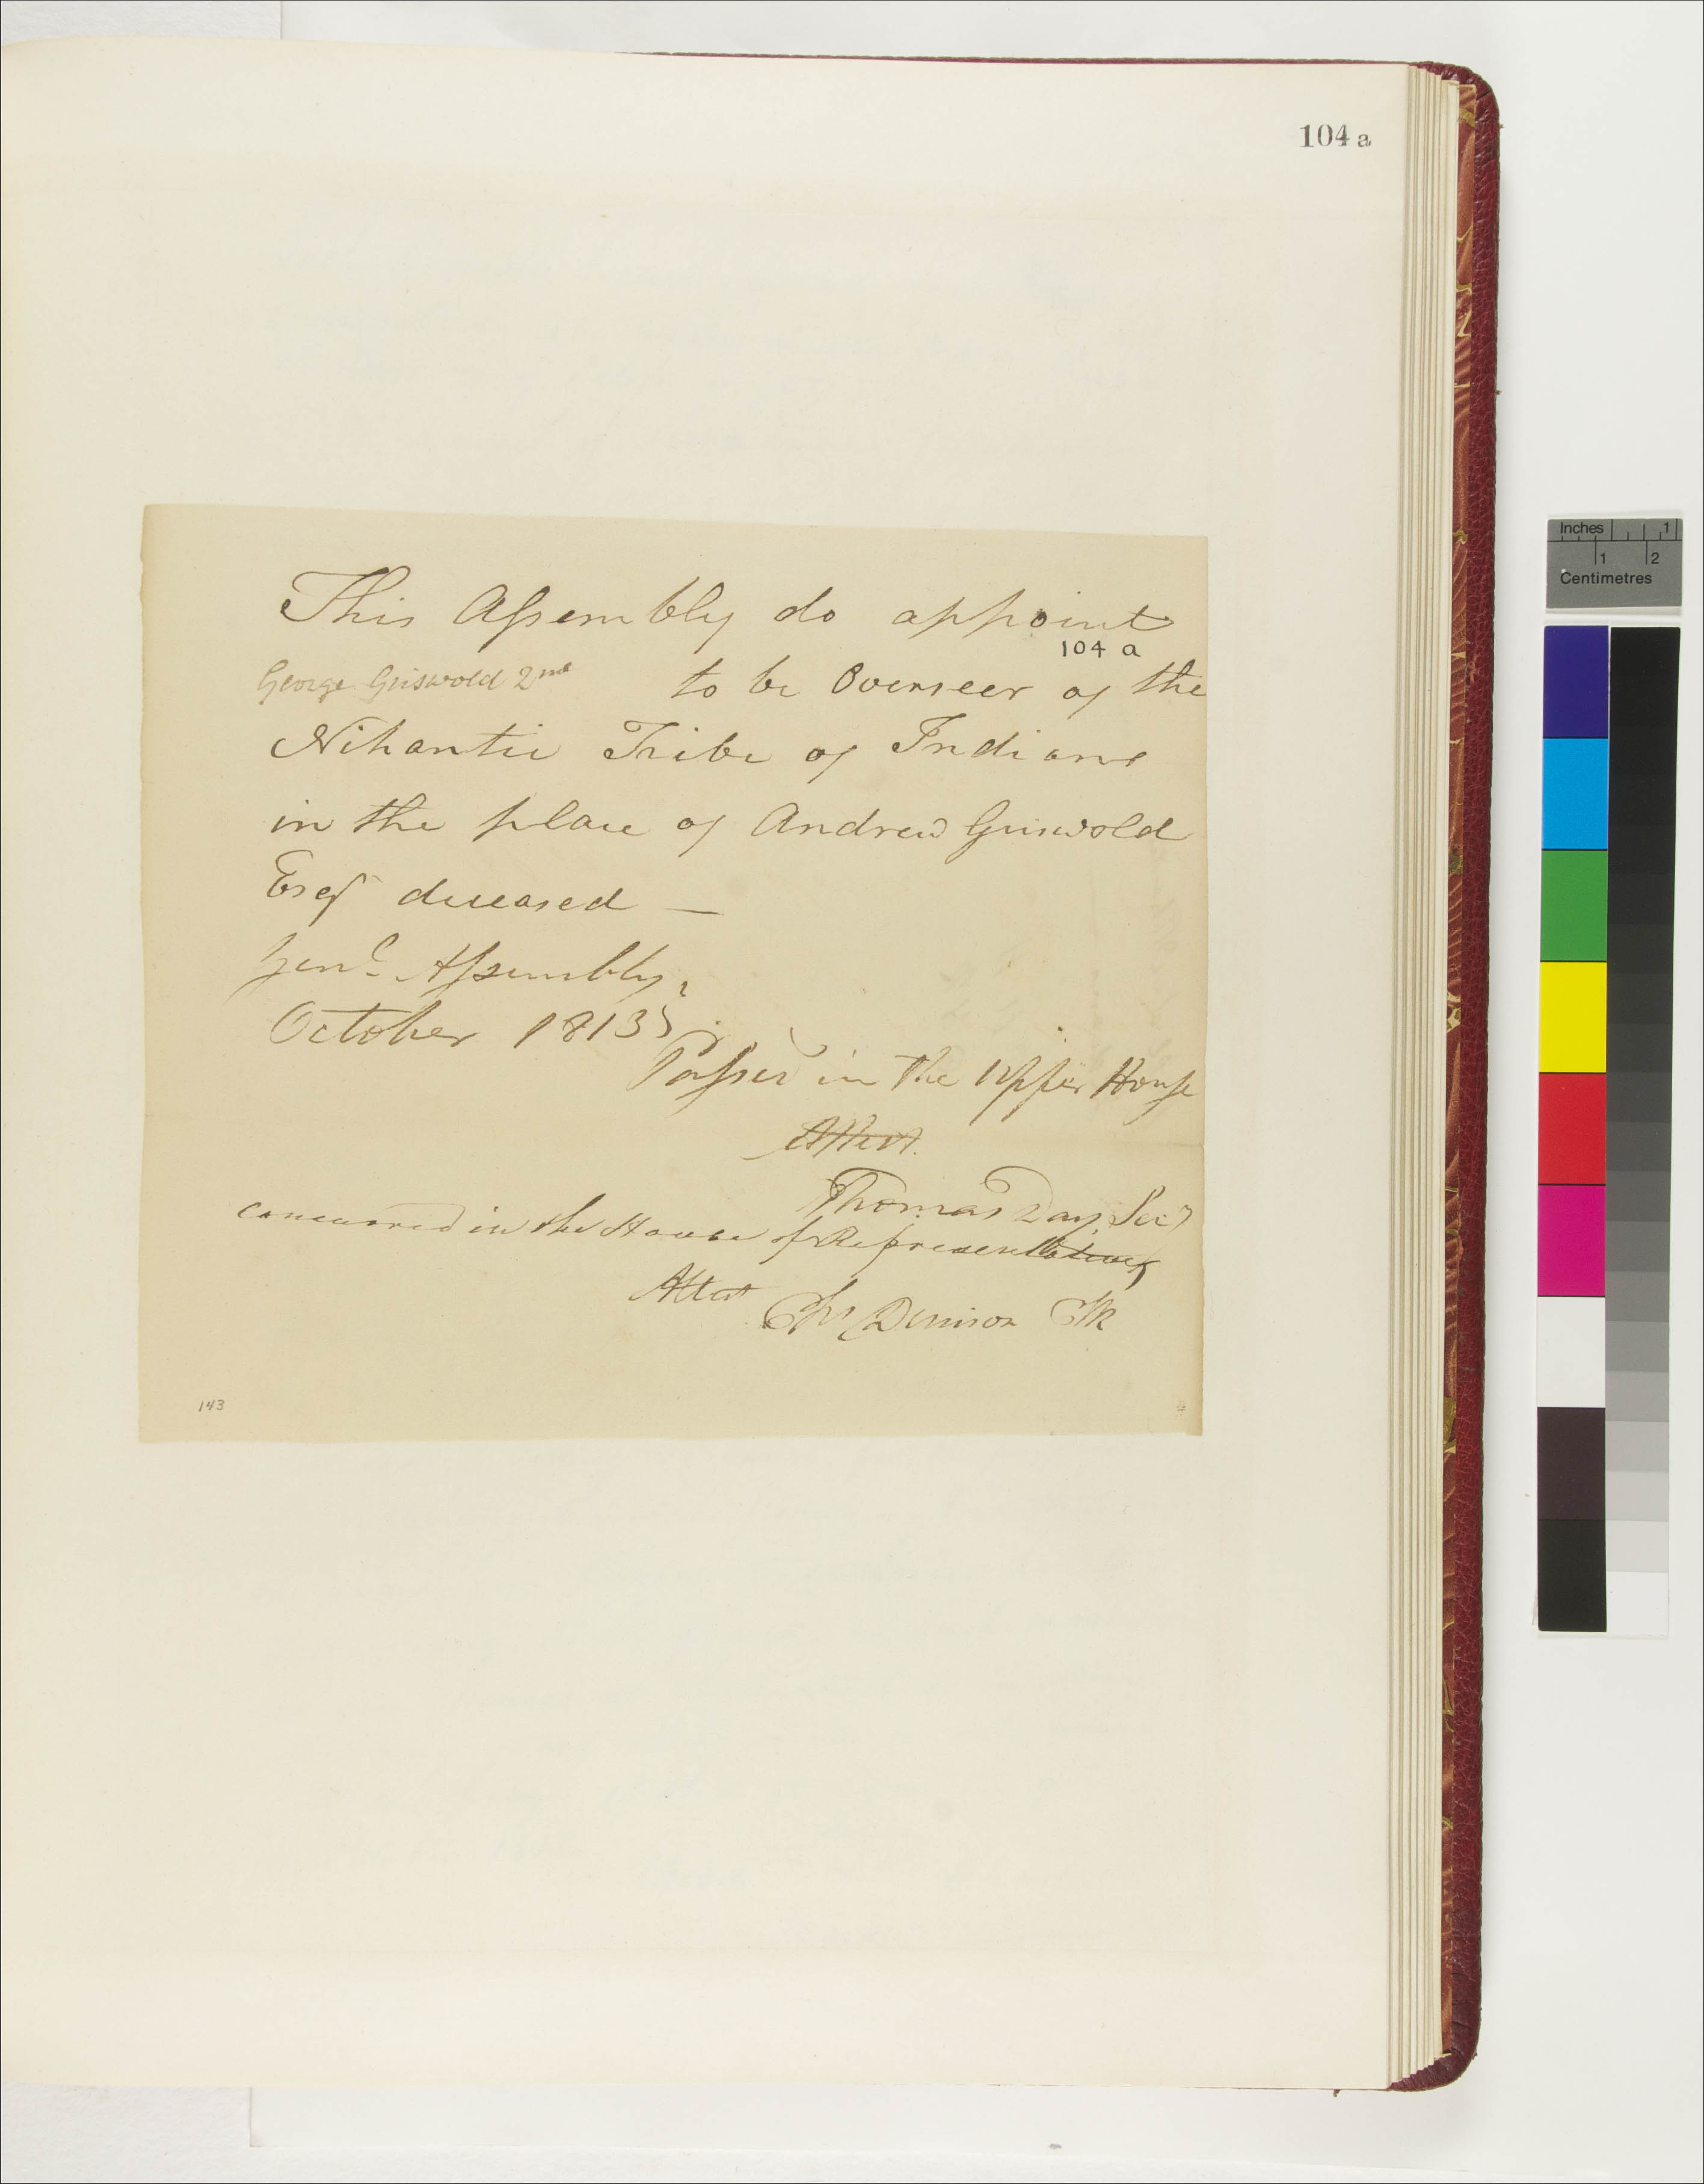 104 a
This Assembly do appoint
104 a
George Griswold 2nd to be Overseer of the
Nihantic Tribe of Indians
in the place of Andrew Griswold
Esqr deceased —
Genl Assembly,
October 1813
Passed in the Upper House
Attest.
Thomas Day, Secy
Concurred in the House of Representatives
Attest Chs Denison Clk
143
Inches 1
1 2
Centimetres